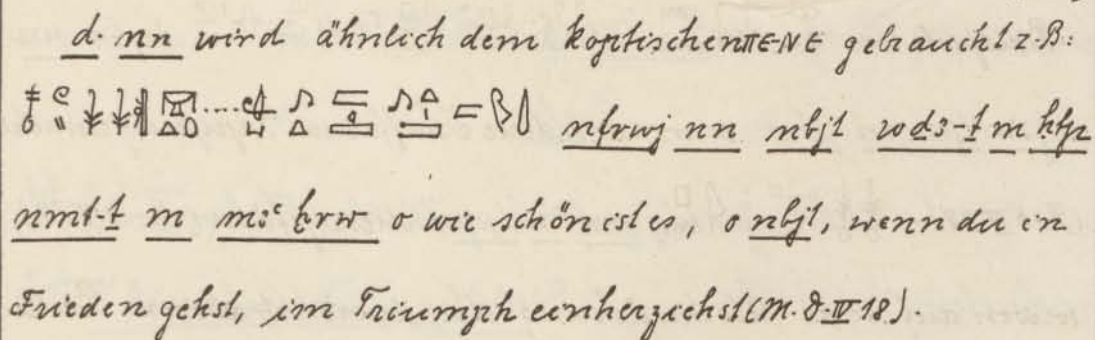 d. nn wird ähnlich dem koptischen ΠΕ-ΝΕ gebraucht z.B:
nfrwj nn nbjt wḏꜣ-ṯ m ḥtp
nmt-ṯ m mꜣꜥ ḫrw o wie schön ist es, o nbjt, wenn du in
Frieden gehst, im Triumph einherziehst (M.d.IV 18).